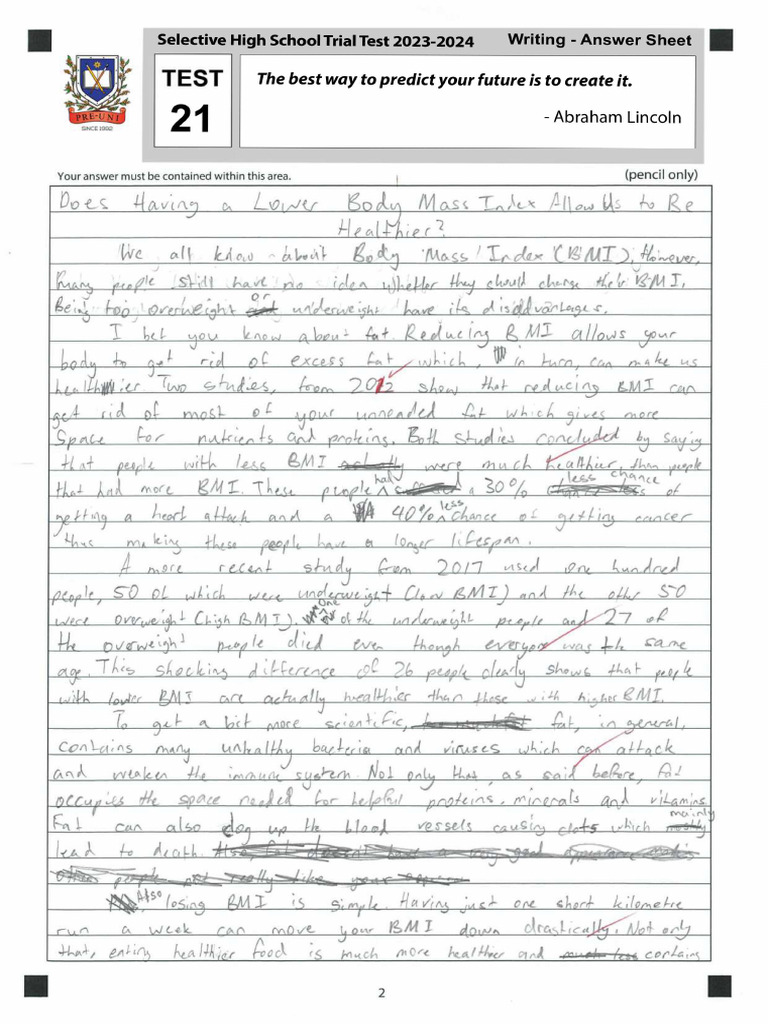 Selective High School Trial Test 2023-2024 Writing - Answer Sheet
PRE-UNI
SINCE 1992
TEST
21
The best way to predict your future is to create it.
- Abraham Lincoln
Your answer must be contained within this area. (pencil only)
Does Having a Lower Body Mass Index Allow Us to Be
Healthier?
We all know about Body Mass Index (BMI). However,
many people still have no idea whether they should change their BMI.
Being too overweight or underweight have its disadvantages.
I bet you know about fat. Reducing BMI allows your
body to get rid of excess fat which, in turn, can make us
healthier Two studies, from 2012 show that reducing BMI can
get rid of most of your unneeded fat which gives more
space for nutrients and proteins. Both studies concluded by saying
that people with less BMI were much healthier than people
that had more BMI. These people had a 30% less chance of
getting a heart attack and a 40% less chance of getting cancer
thus making these people have a longer lifespan.
A more recent study from 2017 used one hundred
people, 50 of which were underweight (low BMI) and the other 50
were overweight (high BMI). One of the underweight people and 27 of
the overweight people died even though everyone was the same
age. This shocking difference of 26 people clearly shows that people
with lower BMI are actually healthier than those with higher BMI.
To get a bit more scientific, fat, in general,
contains many unhealthy bacteria and viruses which can attack
and weaken the immune system. Not only that, as said before, fat
occupies the space needed for helpful proteins, minerals and vitamins.
Fat can also clog up the blood vessels causing clots which mainly
lead to death.
Also, losing BMI is simple. Having just one short kilometre
run a week can move your BMI down drastically. Not only
that, eating healthier food is much more healthier and contains
2